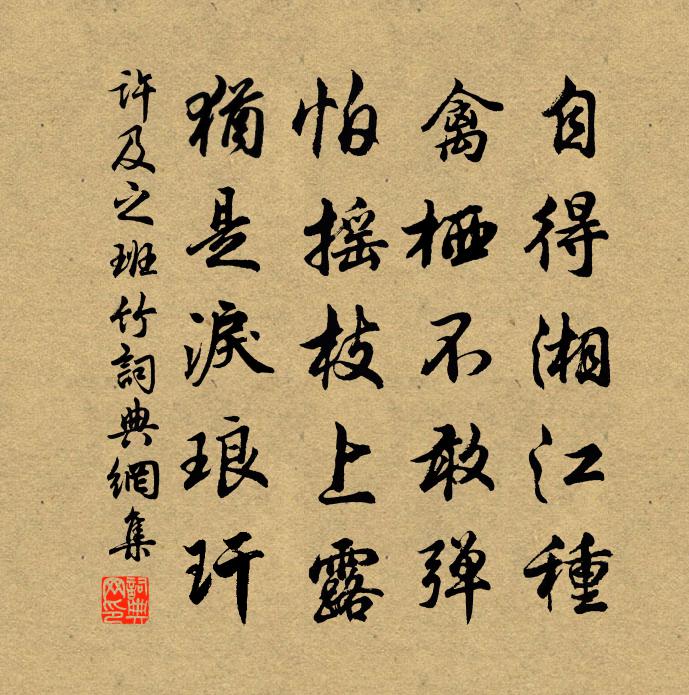 自得湘江種
禽栖不敢弹
怕摇枝上露
猶是淚琅玕
許及之班竹詞典網集
詞典網印